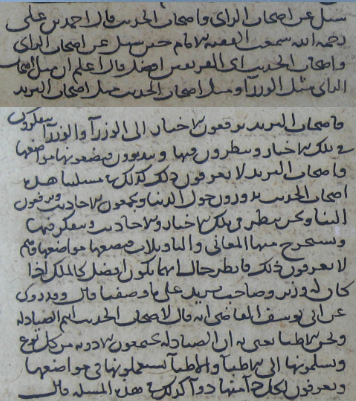 سئل عن اصحاب الراى واصحاب الحديث قال احمد بن على
رحمه الله سمعت الفقيه الامام حين سئل عن اصحاب الراى
واصحاب الحديث اى الفريقين افضل قال اعلم ان مثل اصحاب
الراى مثل الوزرآ ومثل اصحاب الحديث مثل اصحاب البريد
فاصحاب البريد يرفعون الاخبار الى الوزرآ والوزرآ يتفكرون
فى تلك الاخبار وينظرون فيها ويدبرون ويضعونها مواضعها
واصحاب البريد لا يعرفون ذلك كذلك مسئلتنا هذه
اصحاب الحديث يدورون حول الدنيا ويجمعون الاحاديث ويرفعون
الينا ونحن ننظر فى تلك الاخبار والاحاديث ونتفكر فيها
ونستخرج منها المعانى والتاويلات ونضعها مواضعها وهم
لا يعرفون ذلك فانظر حالنا ايهما يكون افضل كالملك اذا
كان له وزير وصاحب بريد على ما وصفنا قال وقد روى
عن ابى يوسف القاضى انه قال لاصحاب الحديث انتم الصيادلة
ونحن الاطبا يعنى ان الصيادلة يجمعون الادوية من كل نوع
ويسلمونها الى الاطبآ والاطبآ يستعملونها فى مواضعها
ويعرفون لكل دآ منها دوآ كذلك هذه المسئلة قال